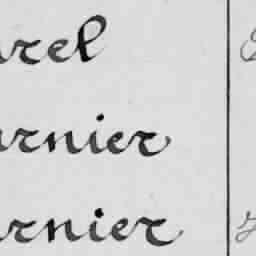 urel
urnier
urnier